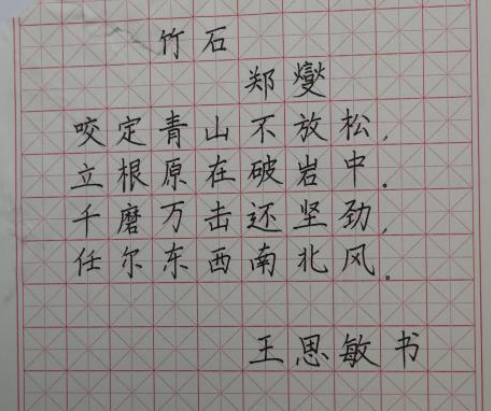 竹石
郑燮
咬定青山不放松，
立根原在破岩中。
千磨万击还坚劲，
任尔东西南北风。
王思敏书